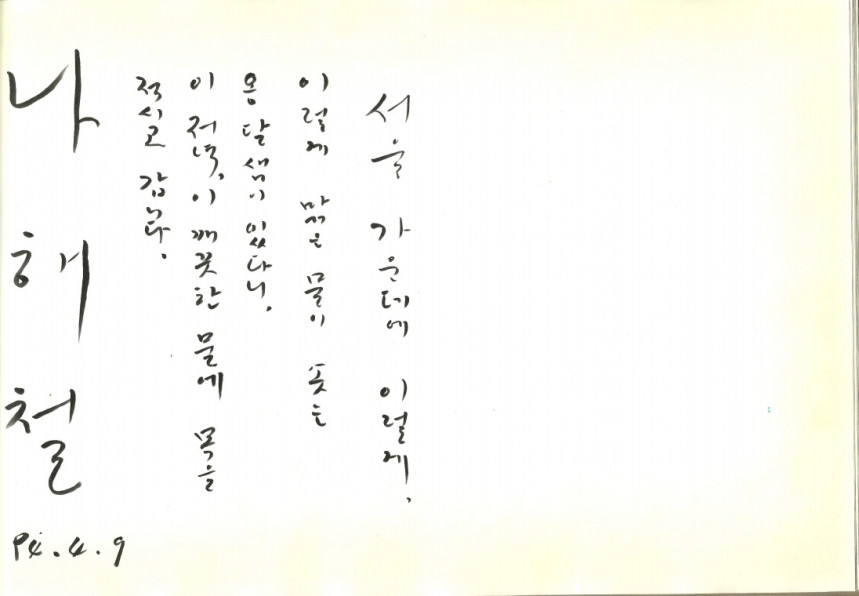 서울 가운데에 이렇게,
이렇게 맑은 물이 솟는
옹달샘이 있다니.
이 저녁, 이 깨끗한 물에 목을
적시고 갑니다.
나해철
94.4.9